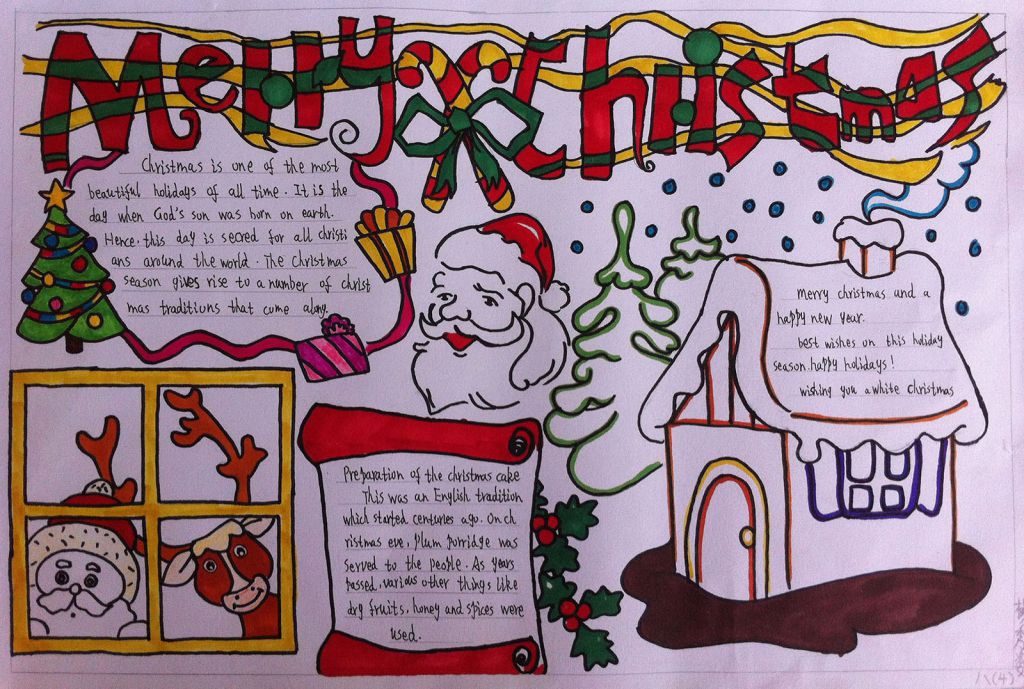 Merry Christmas
Christmas is one of the most
beautiful holidays of all time. It is the
day when God's sun was born on earth.
Hence, this day is secred for all christi
ans around the world. The Christmas
season gives rise to a number of christ
mas traditions that come along.
merry christmas and a
happy new year.
best wishes on this holiday
season.happy holidays!
wishing you a white christmas
Preparation of the christmas cake
This was an English tradition
which started centuries ago. On ch
ristmas eve, plum porridge was
served to the people. As years
passed, various other things like
dry fruits, honey and spices were
used.
八(4)